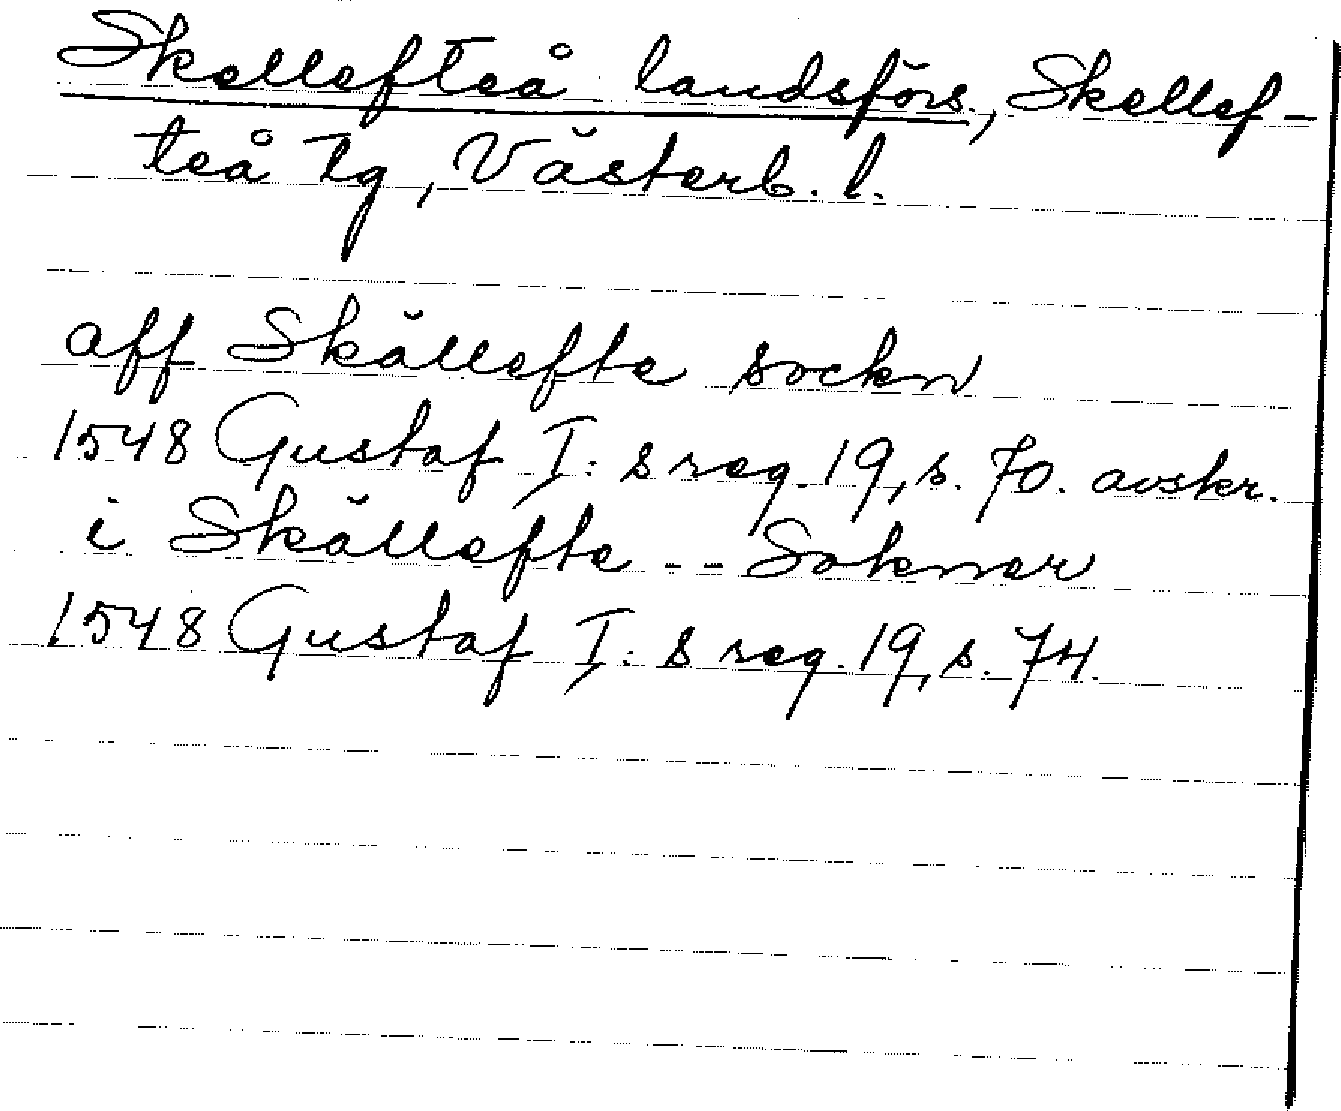 Skellefteå landsförs., Skellef-
teå tg, Västerb. l.
aff Skällefte sockn
1548 Gustaf I:s reg. 19, s. 70. avskr.
i Skällefte -- Sokner
1548 Gustaf I:s reg. 19, s. 74.